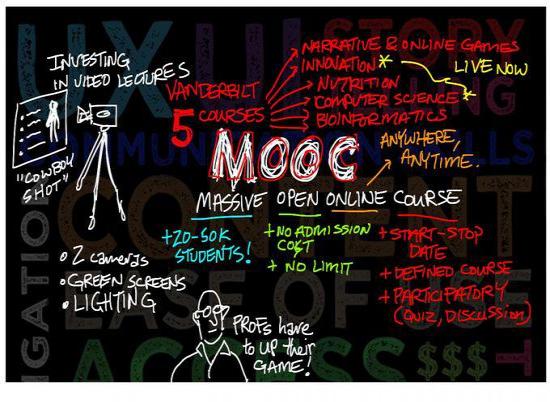 INVESTING
IN VIDEO LECTURES
"COWBOY
SHOT"
• 2 cameras
• GREEN SCREENS
• LIGHTING
VANDERBILT
5 COURSES
NARRATIVE & ONLINE GAMES
INNOVATION *
NUTRITION
COMPUTER SCIENCE *
BIOINFORMATICS
LIVE NOW
MOOC
ANYWHERE,
ANYTIME.
MASSIVE OPEN ONLINE COURSE
+20-50K
STUDENTS!
+NO ADMISSION
COST
+ NO LIMIT
+ START-STOP
DATE
+ DEFINED COURSE
+ PARTICIPATORY
(QUIZ, DISCUSSION)
PROFS have
to UP their
GAME!
UX UI STORY
CONTENT
EASE OF USE
ACCESS $$$